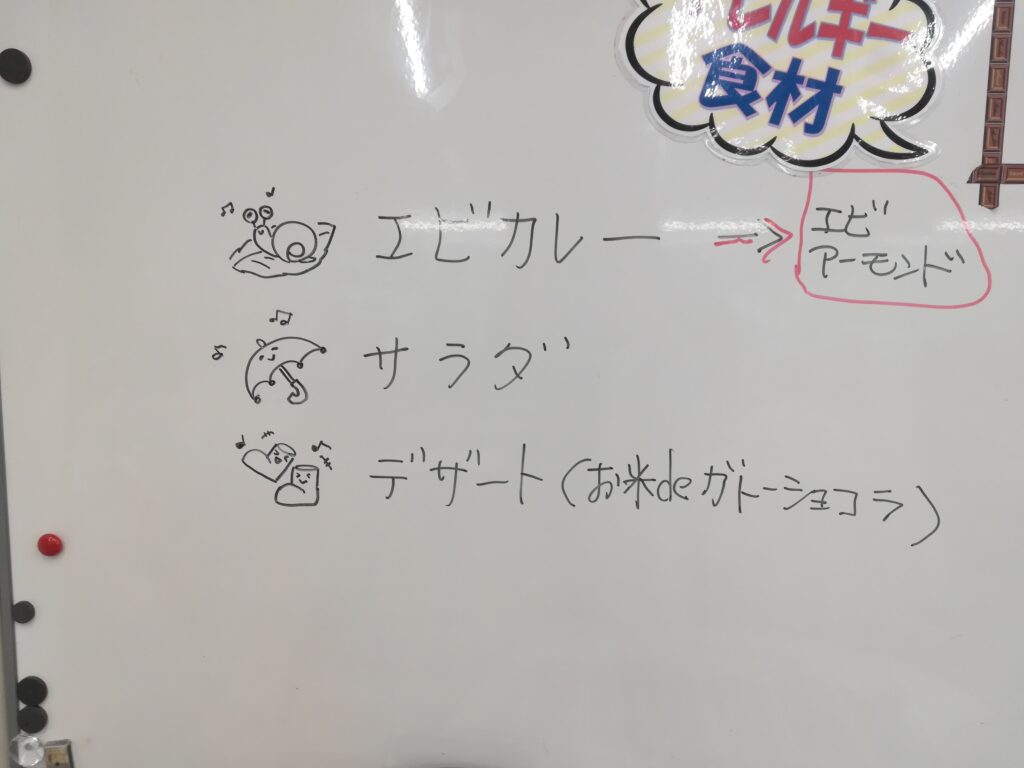 レルギー
食材
エビカレー →
エビ
アーモンド
サラダ
デザート(お米deガトーショコラ)